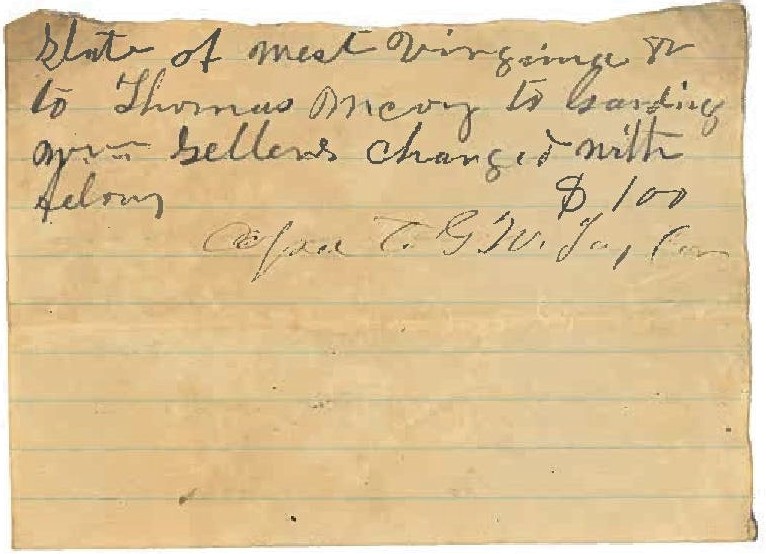 State of West Virginia Dr
to Thomas McCoy to Garding
Wm Sellers charged with
felony $ 100
T. G. W. Taylor